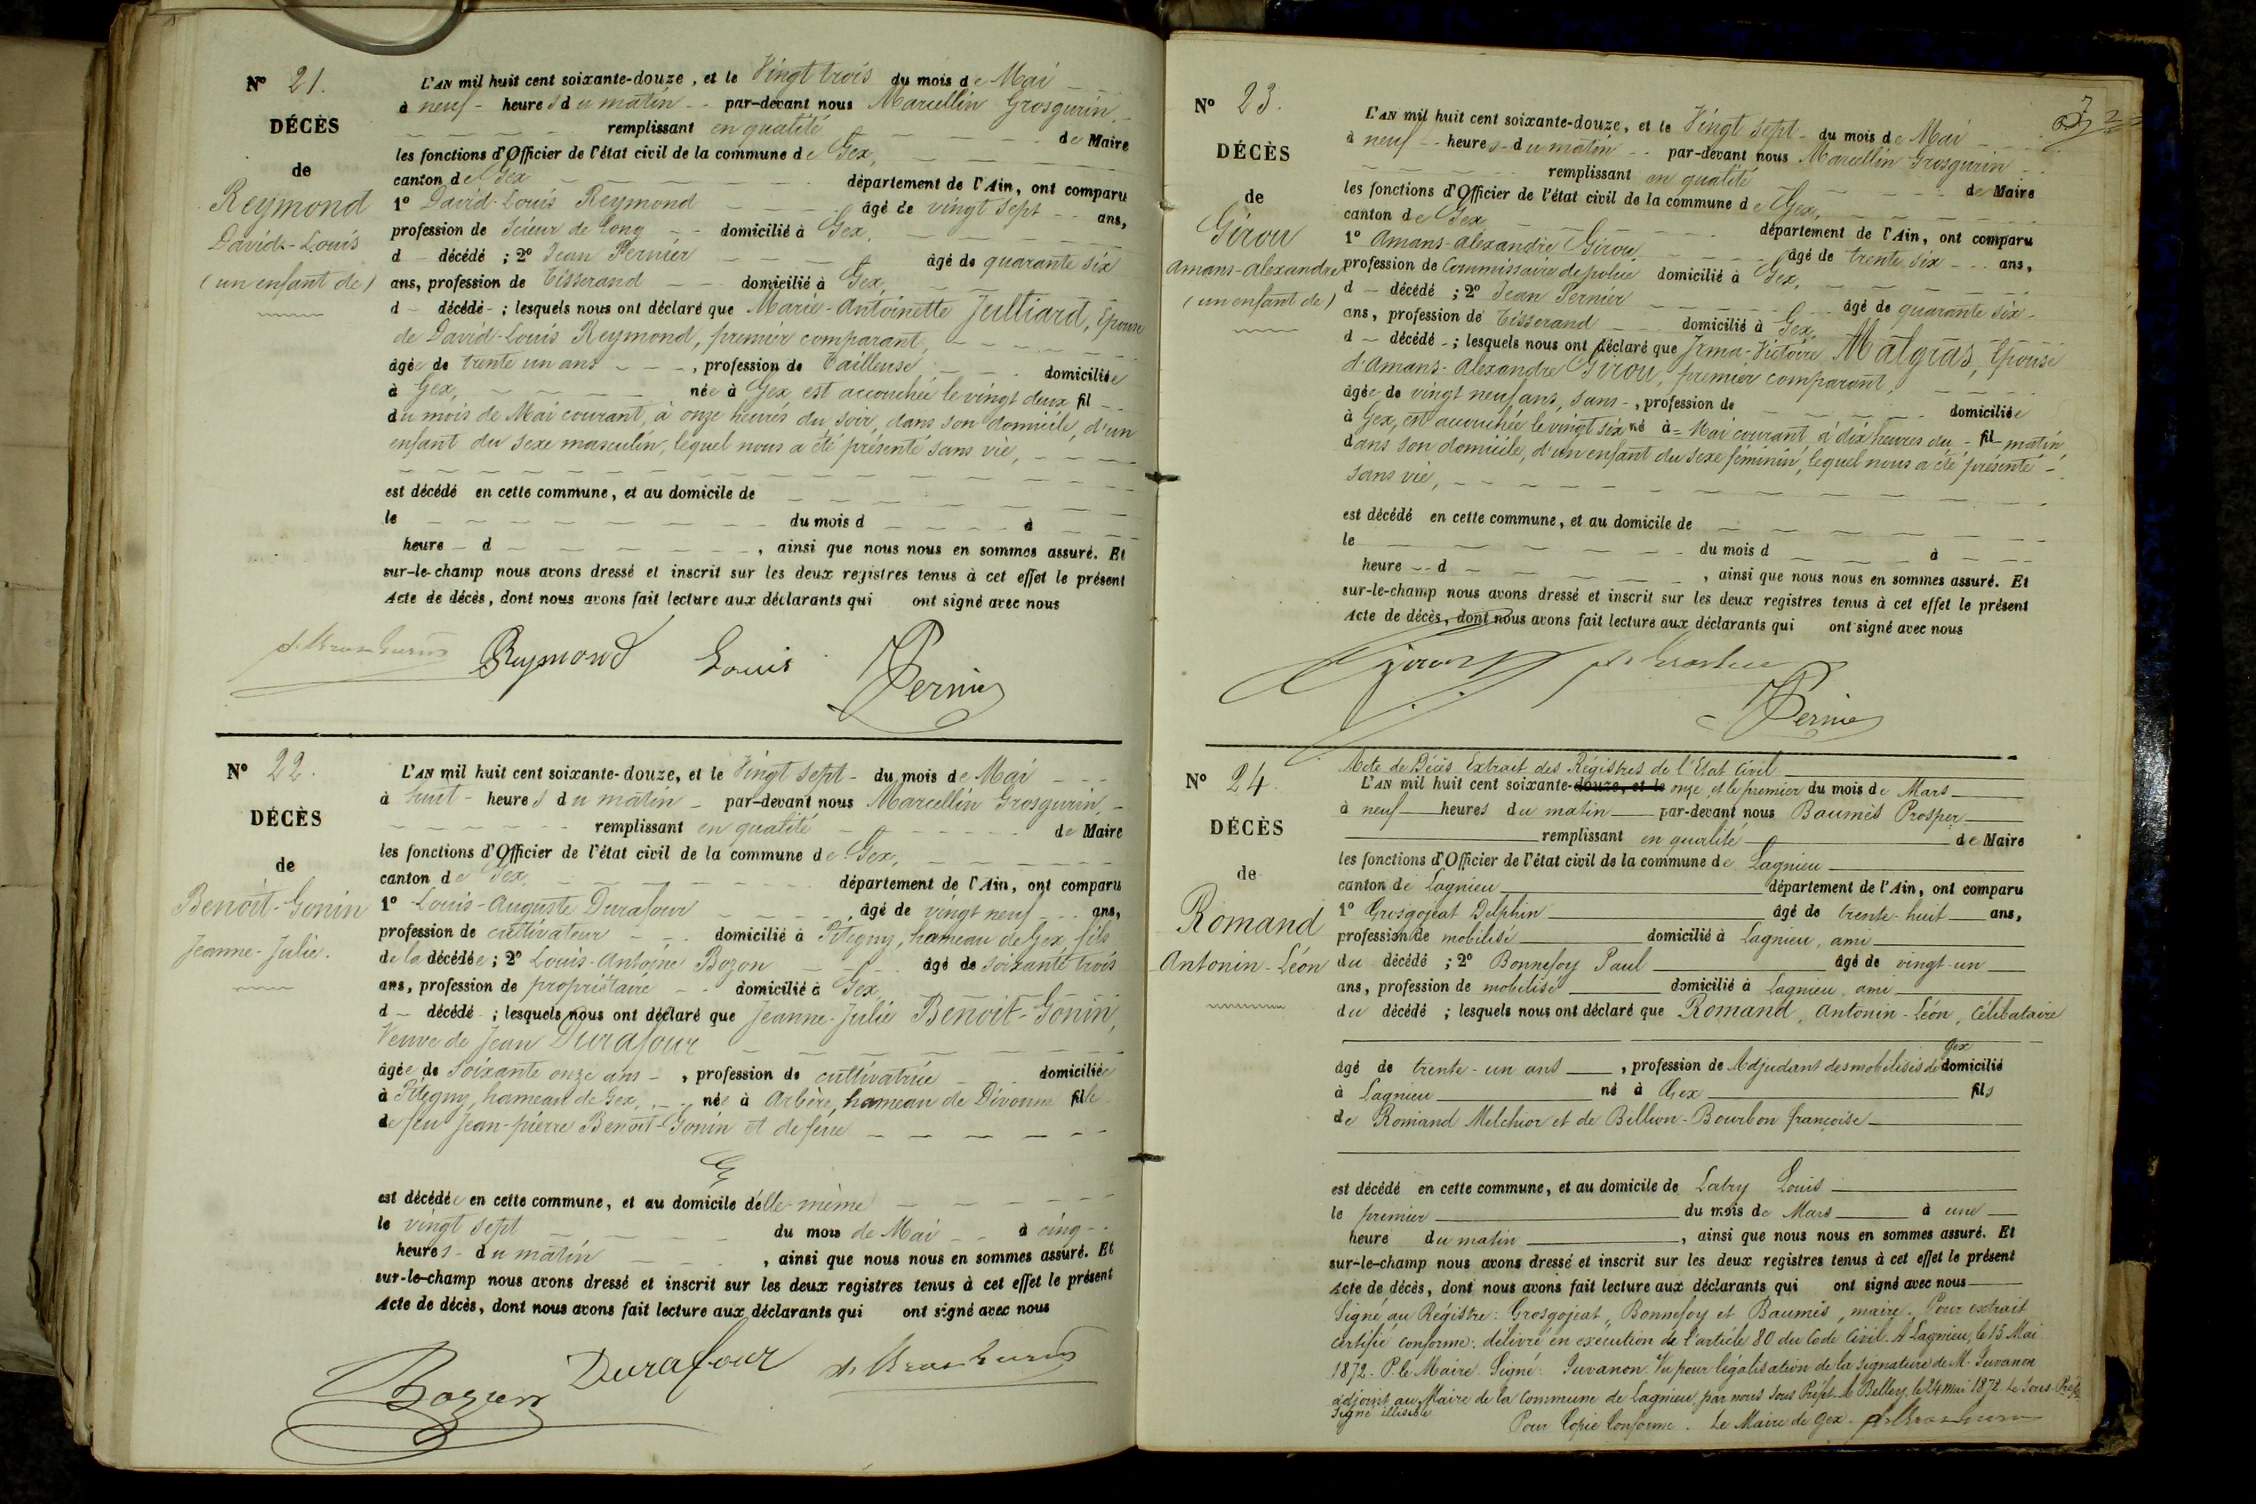 N° 21.
DÉCÈS
de
Reymond
David-Louis
(un enfant de)
L'AN mil huit cent soixante-douze, et le Vingt trois du mois de Mai
à neuf heures du matin par-devant nous Marcellin Grosgurin,
remplissant en qualité de Maire
les fonctions d'Officier de l'état civil de la commune de Gex,
canton de Gex département de l'Ain, ont comparu
1° David-Louis Reymond âgé de vingt sept ans,
profession de Scieur de long domicilié à Gex,
d décédé ; 2° Jean Pernier âgé de quarante six
ans, profession de tisserand domicilié à Gex,
d décédé ; lesquels nous ont déclaré que Marie-Antoinette Julliard, Epouse
de David-Louis Reymond, premier comparant,
âgée de trente un ans, profession de tailleuse domiciliée
à Gex, née à Gex, est accouchée le vingt deux fil
du mois de Mai courant, à onze heures du soir, dans son domicile, d'un
enfant du sexe masculin, lequel nous a été présenté sans vie,
est décédé en cette commune, et au domicile de
le du mois d à
heure d , ainsi que nous nous en sommes assuré. Et
sur-le-champ nous avons dressé et inscrit sur les deux registres tenus à cet effet le présent
Acte de décès, dont nous avons fait lecture aux déclarants qui ont signé avec nous
Reymond Louis Pernier
N° 22.
DÉCÈS
de
Benoit-Gonin
Jeanne-Julie.
L'AN mil huit cent soixante-douze, et le Vingt sept du mois de Mai
à huit heures du matin par-devant nous Marcellin Grosgurin,
remplissant en qualité de Maire
les fonctions d'Officier de l'état civil de la commune de Gex,
canton de Gex département de l'Ain, ont comparu
1° Louis-Auguste Durafour, âgé de vingt neuf ans,
profession de cultivateur domicilié à Pitegny, hameau de Gex, fils
de la décédée ; 2° Louis-Antoine Bozon âgé de soixante trois
ans, profession de propriétaire domicilié à Gex
d décédé ; lesquels nous ont déclaré que Jeanne-Julie Benoit-Gonin,
Veuve de Jean Durafour
âgée de soixante onze ans, profession de cultivatrice domiciliée
à Pitegny, hameau de Gex, née à Arbère, hameau de Divonne fille
de feu Jean-pierre Benoit-Gonin et de feue
est décédée en cette commune, et au domicile d'elle-même
le vingt sept du mois de Mai à cinq
heures du matin, ainsi que nous nous en sommes assuré. Et
sur-le-champ nous avons dressé et inscrit sur les deux registres tenus à cet effet le présent
Acte de décès, dont nous avons fait lecture aux déclarants qui ont signé avec nous
Bozon Durafour
N° 23.
DÉCÈS
de
Girou
Amans-alexandre
(un enfant de)
L'AN mil huit cent soixante-douze, et le Vingt sept du mois de Mai
à neuf heures du matin par-devant nous Marcellin Grosgurin
remplissant en qualité de Maire
les fonctions d'Officier de l'état civil de la commune de Gex,
canton de Gex département de l'Ain, ont comparu
1° Amans-alexandre Girou âgé de trente six ans,
profession de Commissaire de police domicilié à Gex,
d décédé ; 2° Jean Pernier âgé de quarante six
ans, profession de tisserand domicilié à Gex,
d décédé ; lesquels nous ont déclaré que Irma-Victoire Malgras, Epouse
d'Amans-Alexandre Girou, premier comparant,
âgée de vingt neuf ans, sans, profession de domiciliée
à Gex, est accouchée le vingt six né à Mai courant à dix heures du fil matin
dans son domicile, d'un enfant du sexe féminin, lequel nous a été présenté
sans vie,
est décédé en cette commune, et au domicile de
le du mois d à
heure d , ainsi que nous nous en sommes assuré. Et
sur-le-champ nous avons dressé et inscrit sur les deux registres tenus à cet effet le présent
Acte de décès, dont nous avons fait lecture aux déclarants qui ont signé avec nous
Girou
Pernier
N° 24.
DÉCÈS
de
Romand
Antonin-Léon
Acte de Décès Extrait des Régistres de l'Etat Civil
L'AN mil huit cent soixante-douze, et le onze, et le premier du mois de Mars
à neuf heures du matin par-devant nous Baumès Prosper
remplissant en qualité de Maire
les fonctions d'Officier de l'état civil de la commune de Lagnieu
canton de Lagnieu département de l'Ain, ont comparu
1° Grosgojeat Delphin âgé de trente-huit ans,
profession de mobilisé domicilié à Lagnieu, ami
du décédé ; 2° Bonnefoy Paul âgé de vingt-un
ans, profession de mobilisé domicilié à Lagnieu, ami
du décédé ; lesquels nous ont déclaré que Romand, Antonin-Léon, Célibataire
âgé de trente-un ans, profession de Adjudant des mobilisés de Gex domicilié
à Lagnieu né à Gex fils
de Romand Melchior et de Bellion-Bourbon françoise
est décédé en cette commune, et au domicile de Labry Louis
le premier du mois de Mars à une
heure du matin, ainsi que nous nous en sommes assuré. Et
sur-le-champ nous avons dressé et inscrit sur les deux registres tenus à cet effet le présent
Acte de décès, dont nous avons fait lecture aux déclarants qui ont signé avec nous
Signé au Régistre : Grosgojeat, Bonnefoy et Baumès, maire. Pour extrait
certifié conforme : délivré en exécution de l'article 80 du Code Civil. A Lagnieu, le 13 Mai
1872. P. le Maire. Signé : Juvanon. Vu pour légalisation de la signature de M. Juvanon
adjoint au Maire de la Commune de Lagnieu, par nous Sous Préfet. A Belley, le 24 mai 1872. Le Sous-Préfet
Signé illisible
Pour Copie Conforme. Le Maire de Gex.